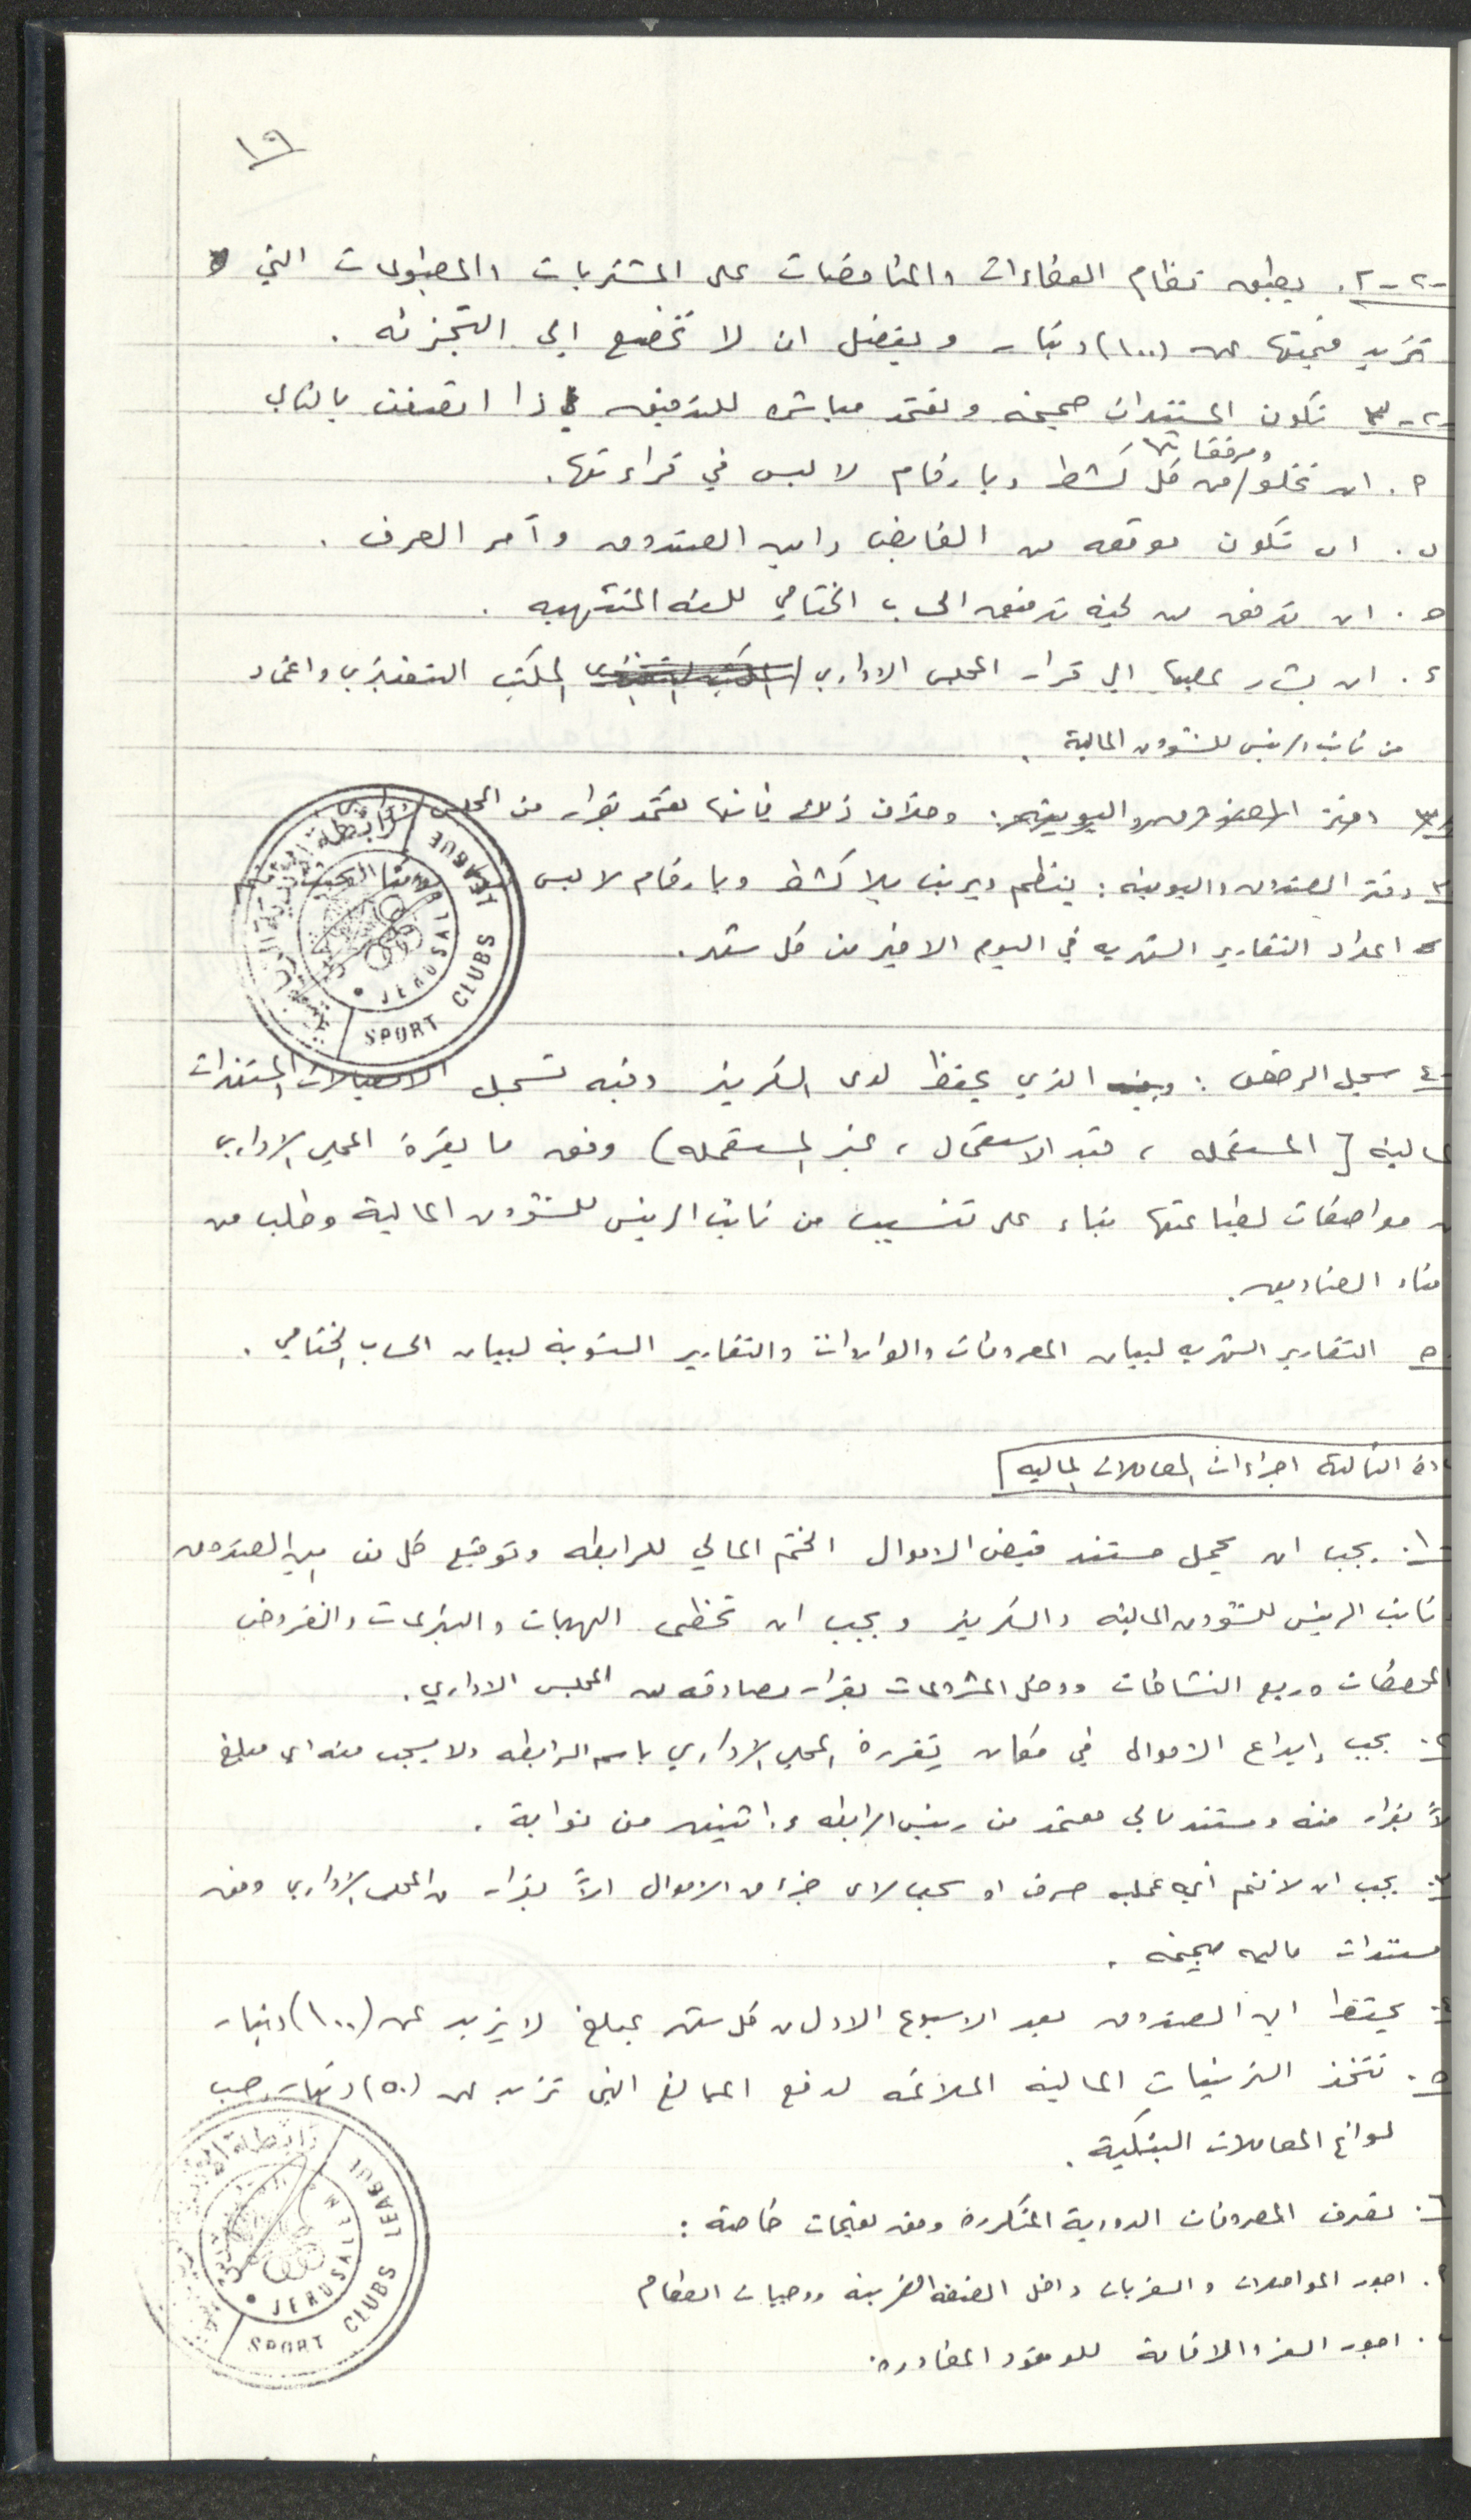 ١٩
-٢-٢. يطبق نظام العطاءات والمناقصات على المشتريات والمطبوعات التي
تزيد قيمتها عن (١٠٠) دينار ويفضل ان لا تخضع الى التجزئه .
-٢-٣ تكون المستندات صحيحه وتعتمد مباشره للتدقيق اذا اتصفت بالتالي
ومرفقاتها
أ. ان تخلو من كل كشط وبارقام لا لبس في قراءتها.
ب. ان تكون موقعه من القابض وامين الصندوق وآمر الصرف .
ج. ان تدقق من لجنه تدقيق الحساب الختامي للسنه المنتهيه .
د. ان يشار عليها الى قرار المجلس الاداري المكتب التنفيذي واعتماد
من نائب الرئيس للشؤون المالية .
٣ دفتر الصندوق واليومية: وخلاف ذلك فانها تعتمد بقرار من المجلس
٣ دفتر الصندوق واليوميه : ينظم ويرتب بلا كشط وبارقام لا لبس
اعداد التقارير الشهريه في اليوم الاخير من كل شهر.
رابطة الاندية
LEAGUE
JERUSALEM
SPORT CLUBS
-٤ سجل الرصفى : الذي يحفظ لدى السكرتير وفيه تسجل المستندات
المالية [المستعمله ، قيد الاستعمال ، غير المستعمله) وفق ما يقرة المجلس الاداري
من مواصفات لطباعتها بناء على تنسيب من نائب الرئيس للشؤون المالية وطلب من
امناء الصناديق.
٥ التقارير الشهريه لبيان المصروفات والواردات والتقارير السنوية لبيان الحساب الختامي .
ادة الثالثة اجراءات المعاملات المالية
-١. يجب ان يحمل مستند قبض الاموال الختم المالي للرابطه وتوقيع كل من امين الصندوق
نائب الرئيس للشؤون الماليه والسكرتير ويجب ان تحظى الهبات والتبرعات والقروض
المخصصات وريع النشاطات ودخل المشروعات بقرار مصادقه من المجلس الاداري.
٢. يجب إيداع الاموال في مكان يقررة المجلس الاداري باسم الرابطه ولا يسحب منه اى مبلغ
لاً بقرار منه ومستند مالي معتمد من رئيس الرابطه و. اثنين من نوابة .
٣. يجب ان لا تتم أي عمليه صرف او سحب لاى جزء من الاموال الاً بقرار من المجلس الاداري وفق
مستندات ماليه صحيحه .
٤. يحتفظ امين الصندوق بعد الاسبوع الاول من كل شهر بمبلغ لا يزيد عن (١٠٠) دينار
٥. تتخذ الترتيبات المالية الملائمه لدفع المبالغ التي تزيد عن (٥٠) دينار حسب
لوائح المعاملات البنكية .
٦. تصرف المصروفات الدورية المتكررة وفق تعليمات خاصة :
أ. اجور المواصلات والسفريات داخل الضفه الغربيه ووجبات الطعام
ب. اجور السفر والاقامة للوفود المغادرة.
رابطة الاندية
LEAGUE
JERUSALEM
SPORT CLUBS